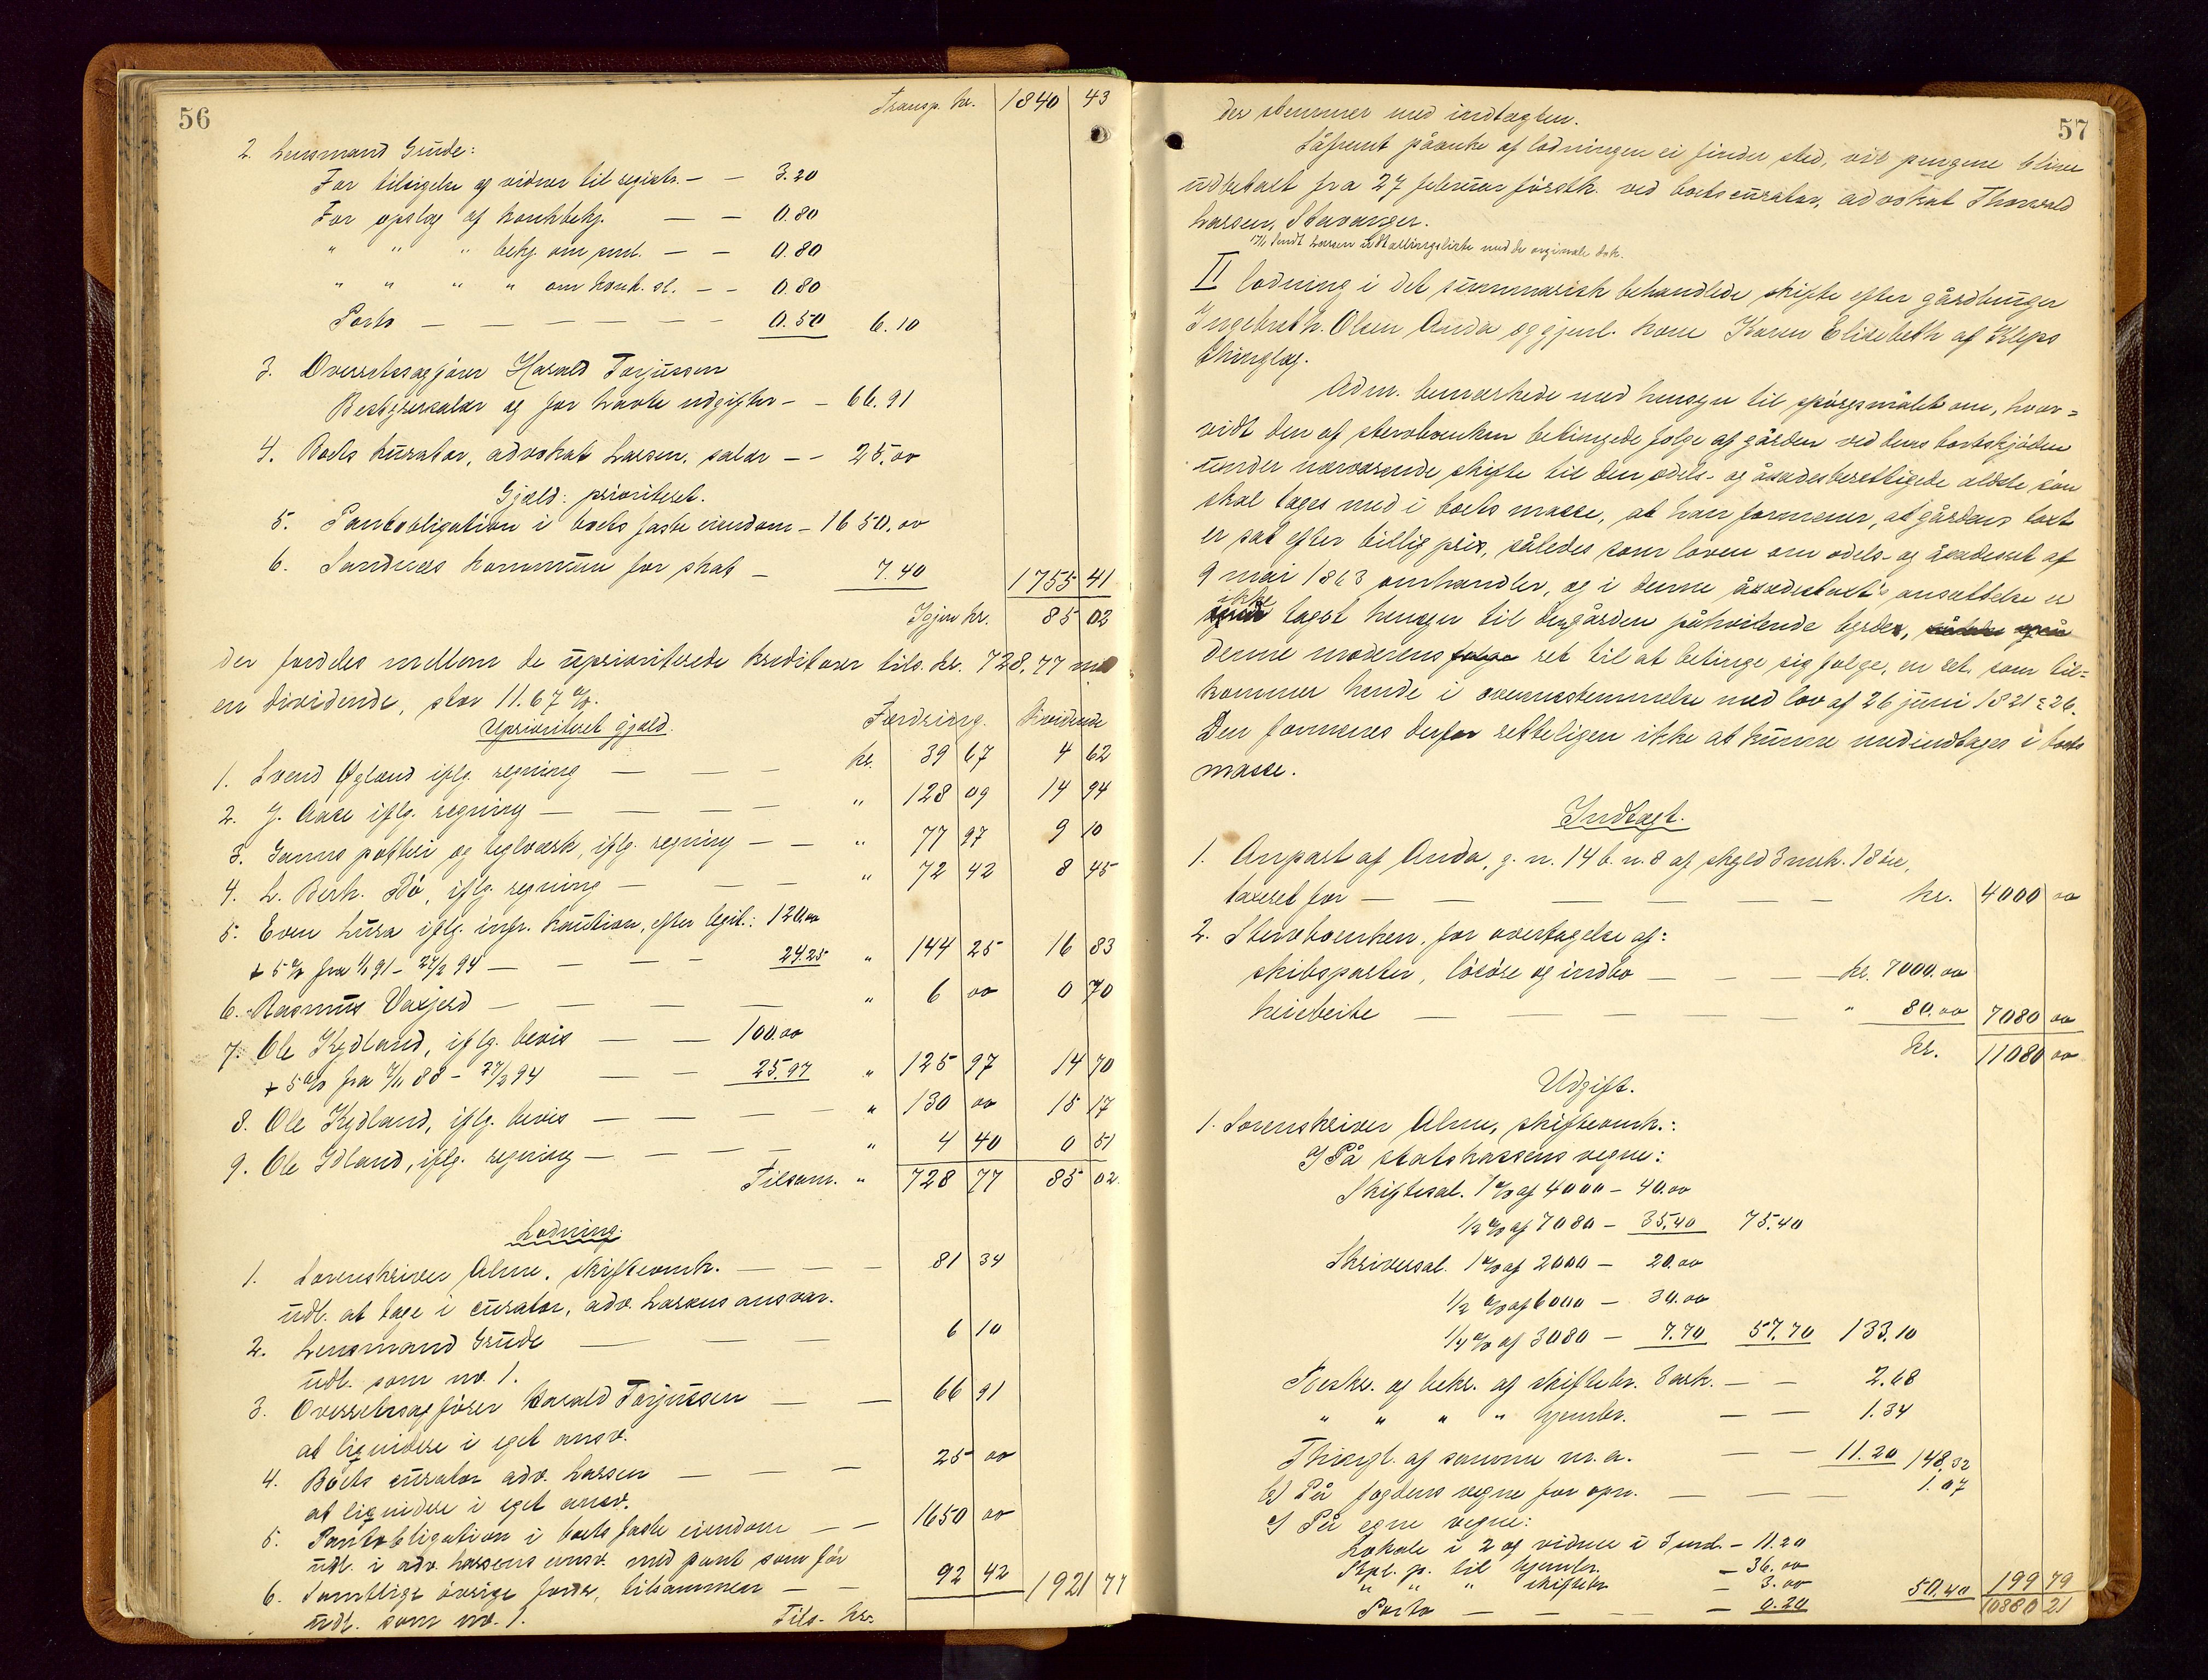 56
Transp. kr. 1840 43
2. Lensmand Grude:
For tilsigelse af vidner til registr. — — 3.20
For opslag af konkbekj. — — 0.80
" " " bekj. om aml. — — 0.80
" " " " om konk. sl. — — 0.80
Porto — — — — — — 0.50 6.10
3. Overretssagfører Harald Torjussen
Bestyrersalær og for havte udgifter — — 66.91
4. Boets kurator, advokat Larsen, salær — — 25.00
Gjæld: prioriteret.
5. Pantobligation i boets faste eiendom — 1650.00
6. Sandnes kommune for skat — 7.40 1755 41
Igjen kr. 85 02
der fordeles mellem de uprioriterede kreditorer tils. kr. 728,77 med
en dividende, stor 11.67 %.
Uprioriteret gjæld. Fordring. Dividende
1. Svend Øgland iflg. regning — — — kr. 39 67 4 62
2. J. Aase iflg. regning — — — — " 128 09 14 94
3. Ganns potteri og teglværk, iflg. regning — — " 77 97 9 10
4. L. Berh. Bø, iflg. regning — — — " 72 42 8 45
5. Even Lura iflg. insp. kaution, efter legit.: 120.00
+ 5 % fra 1/1 91 - 27/2 94 — — — — 24.25 " 144 25 16 83
6. Rasmus Vaxjerd — — — — " 6 00 0 70
7. Ole Kydland, iflg. bevis — — 100.00
+ 5 % fra 7/11 88 - 27/2 94 — — 25.97 " 125 97 14 70
8. Ole Kydland, iflg. bevis — — — — " 130 00 15 17
9. Ole Idland, iflg. regning — — — — " 4 40 0 51
Tilsam. " 728 77 85 02.
Lodning.
1. Sorenskriver Alme, skifteomk. — — — 81 34
udl. at tage i curator, adv. Larsens ansvar.
2. Lensmand Grude — — — 6 10
udl. som no. 1.
3. Overretssagfører Harald Torjussen — — 66 91
at liqvidere i eget ansv.
4. Boets curator adv. Larsen — — — 25 00
at liqvidere i eget ansv.
5. Pantobligation i boets faste eiendom — — 1650 00
udl. i adv. Larsens ansv. med pant som før
6. Samtlige øvrige fordr. tilsammen — — 92 42 1921 77
udl. som no. 1. Tils. kr.
57
der stemmer med indtægten.
Såfremt påanke af lodningen ei finder sted, vil pengene blive
udbetalt fra 27 februar førstk. ved boets curator, advokat Thorvald
Larsen, Stavanger.
17/1 sendt Larsen udtællingsliste med de originale dok.
II lodning i det summarisk behandlede skifte efter gårdbruger
Ingebreth. Olsen Anda og gjenl. kone Karen Elisebeth af Klepp
thinglag.
Adm. bemærkede med hensyn til spørgsmålet om, hvor=
vidt den af stervboenken betingede folge af gården ved dens bortskjøden
under nærværende skifte til den odels- og åsædesberettigede ældste søn
skal tages med i boets masse, at han formener, at gårdens taxt
er sat efter billig pris, således som loven om odels- og åsædesret af
9 mai 1863 omhandler, og i denne åsædestaxts ansættelse er
ikke taget hensyn til den gården påhvilende byrde,
denne moderens ret til at betinge sig folge, en ret, som til=
kommer hende i overensstemmelse med lov af 26 juni 1821 § 26.
Den formenes derfor retteligen ikke at kunne medindtages i boets
masse.
Indtægt.
1. Anpart af Anda, g. n. 14 b. n. 8 af skyld 3 mrk. 18 øre,
taxeret for — — — — — — kr. 4000 00
2. Stervboenken, for overtagelse af:
skibsparter, løsøre og indbo — — — — kr. 7000.00
heiebeite — — — — — " 80.00 7080 00
kr. 11080 00
Udgift.
1. Sorenskriver Alme, skifteomk.:
a) På statskassens vegne:
Skiftesal. 1 % af 4000 — 40.00
1/2 % af 7080 — 35.40 75.40
Skriversal. 1 % af 2000 — 20.00
1/2 % af 6000 — 30.00
1/4 % af 3080 — 7.70 57.70 133.10
Beskr. og bekr. af skiftebr. 3 ark. — — 2.68
" " " " hjembr. — — 1.34
Thingl. af samme m. a. — — 11.20 148,32
b) På fogdens vegne for opn. — — — 1.07
c) På egne vegne:
Lokale i 2 og vidne i 3 md. — 11.20
Stpl. p. til hjembr. — 36.00
" " " skiftebr. — 3.00
Porto — — — — — 0.20 50.40 199 79
10880 21